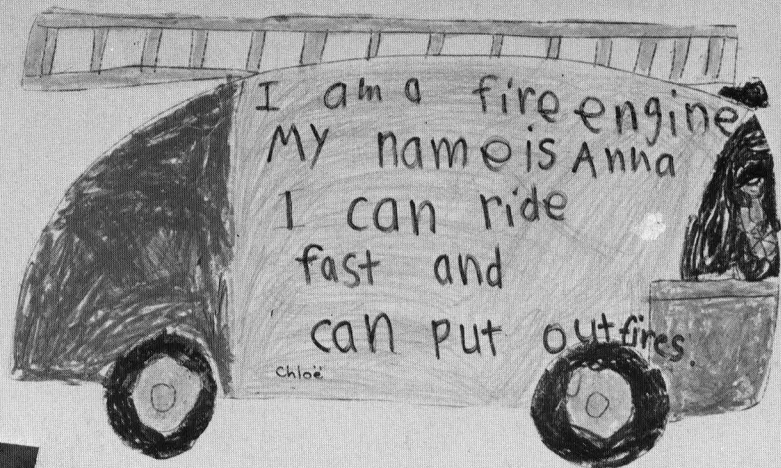 I am a fire engine
My name is Anna
I can ride
fast and
can put out fires.
Chloë